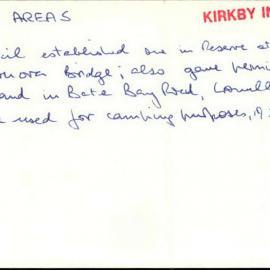 AREAS
KIRKBY IN
cil established one in Reserve at
Bridge; also gave permi
and in Bate Bay Road,
used for camping purposes, 19